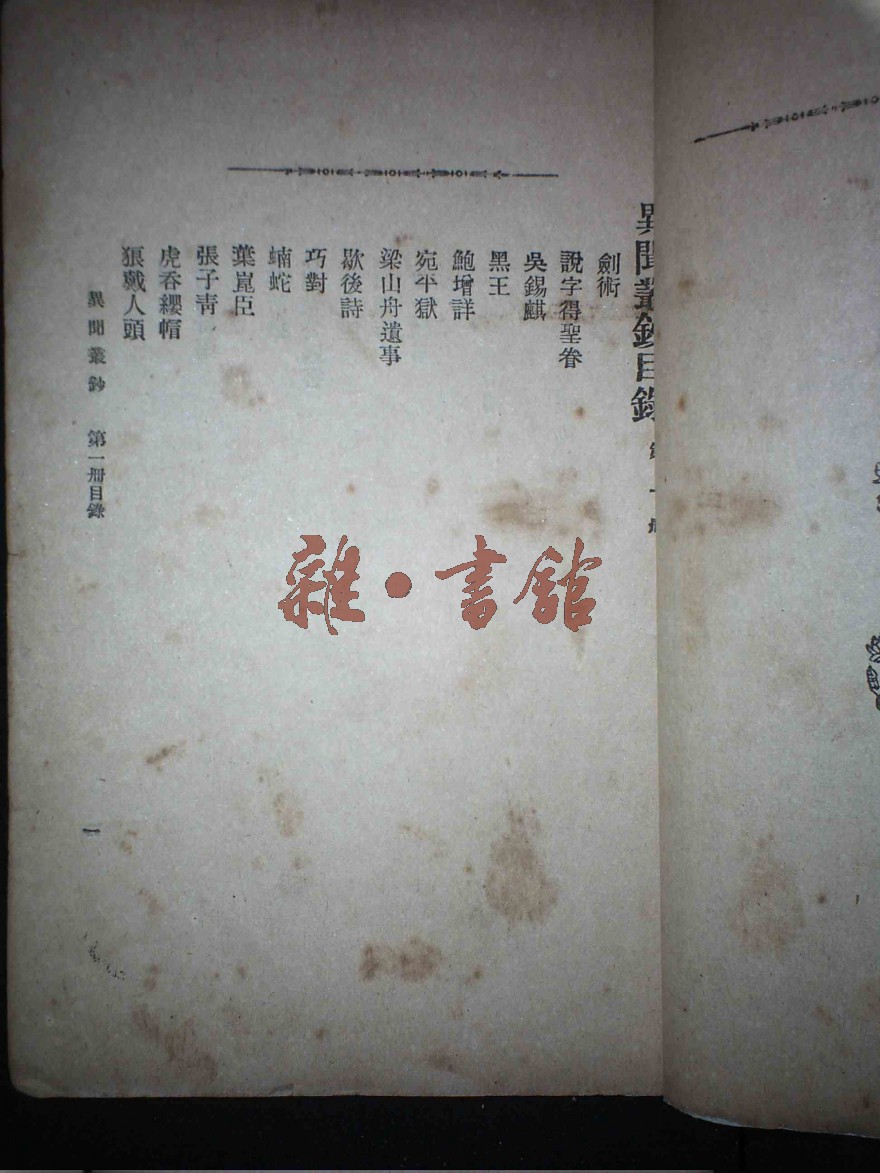 異聞叢鈔目錄 第一册
劍術
說字得聖眷
吳錫麒
黑王
鮑增詳
宛平獄
梁山舟遺事
歇後詩
巧對
蝻蛇
葉崑臣
張子靑
虎吞纓帽
狼戴人頭
異聞叢鈔 第一册目錄
一
雜·書館